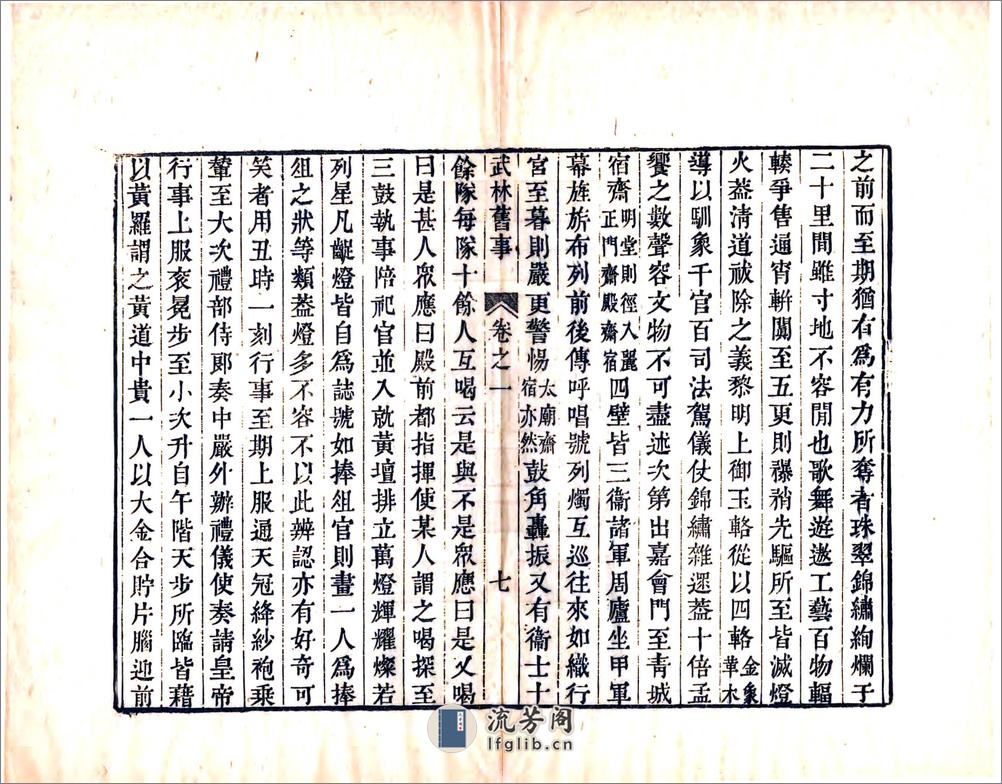 之前而至期猶有爲有力所奪者珠翠錦繡絢爛于
二十里間雖寸地不容閒也歌舞遊遨工藝百物輻
輳爭售通宵駢闐至五更則襮矟先驅所至皆滅燈
火葢清道祓除之義黎明上御玉輅從以四輅金象革木
導以馴象千官百司法駕儀仗錦繡雜遝葢十倍孟
饗之數聲容文物不可盡述次第出嘉會門至靑城
宿齋明堂則徑入麗正門齋殿齋宿四壁皆三衞諸軍周廬坐甲軍
幕旌旂布列前後傳呼唱號列燭互巡往來如織行
宮至暮則嚴更警惕太廟齋宿亦然鼓角轟振又有衞士十
武林舊事 卷之一 七
餘隊每隊十餘人互喝云是與不是眾應曰是又喝
曰是甚人眾應曰殿前都指揮使某人謂之喝探至
三鼓執事陪祀官並入就黃壇排立萬燈輝耀燦若
列星凡龊燈皆自爲誌號如捧俎官則畫一人爲捧
俎之狀等類葢燈多不容不以此辨認亦有好奇可
笑者用丑時一刻行事至期上服通天冠絳紗袍乘
輦至大次禮部侍郎奏中嚴外辦禮儀使奏請皇帝
行事上服衮冕步至小次升自午階天步所臨皆藉
以黃羅謂之黃道中貴一人以大金合貯片腦迎前
流芳阁
lfglib.cn